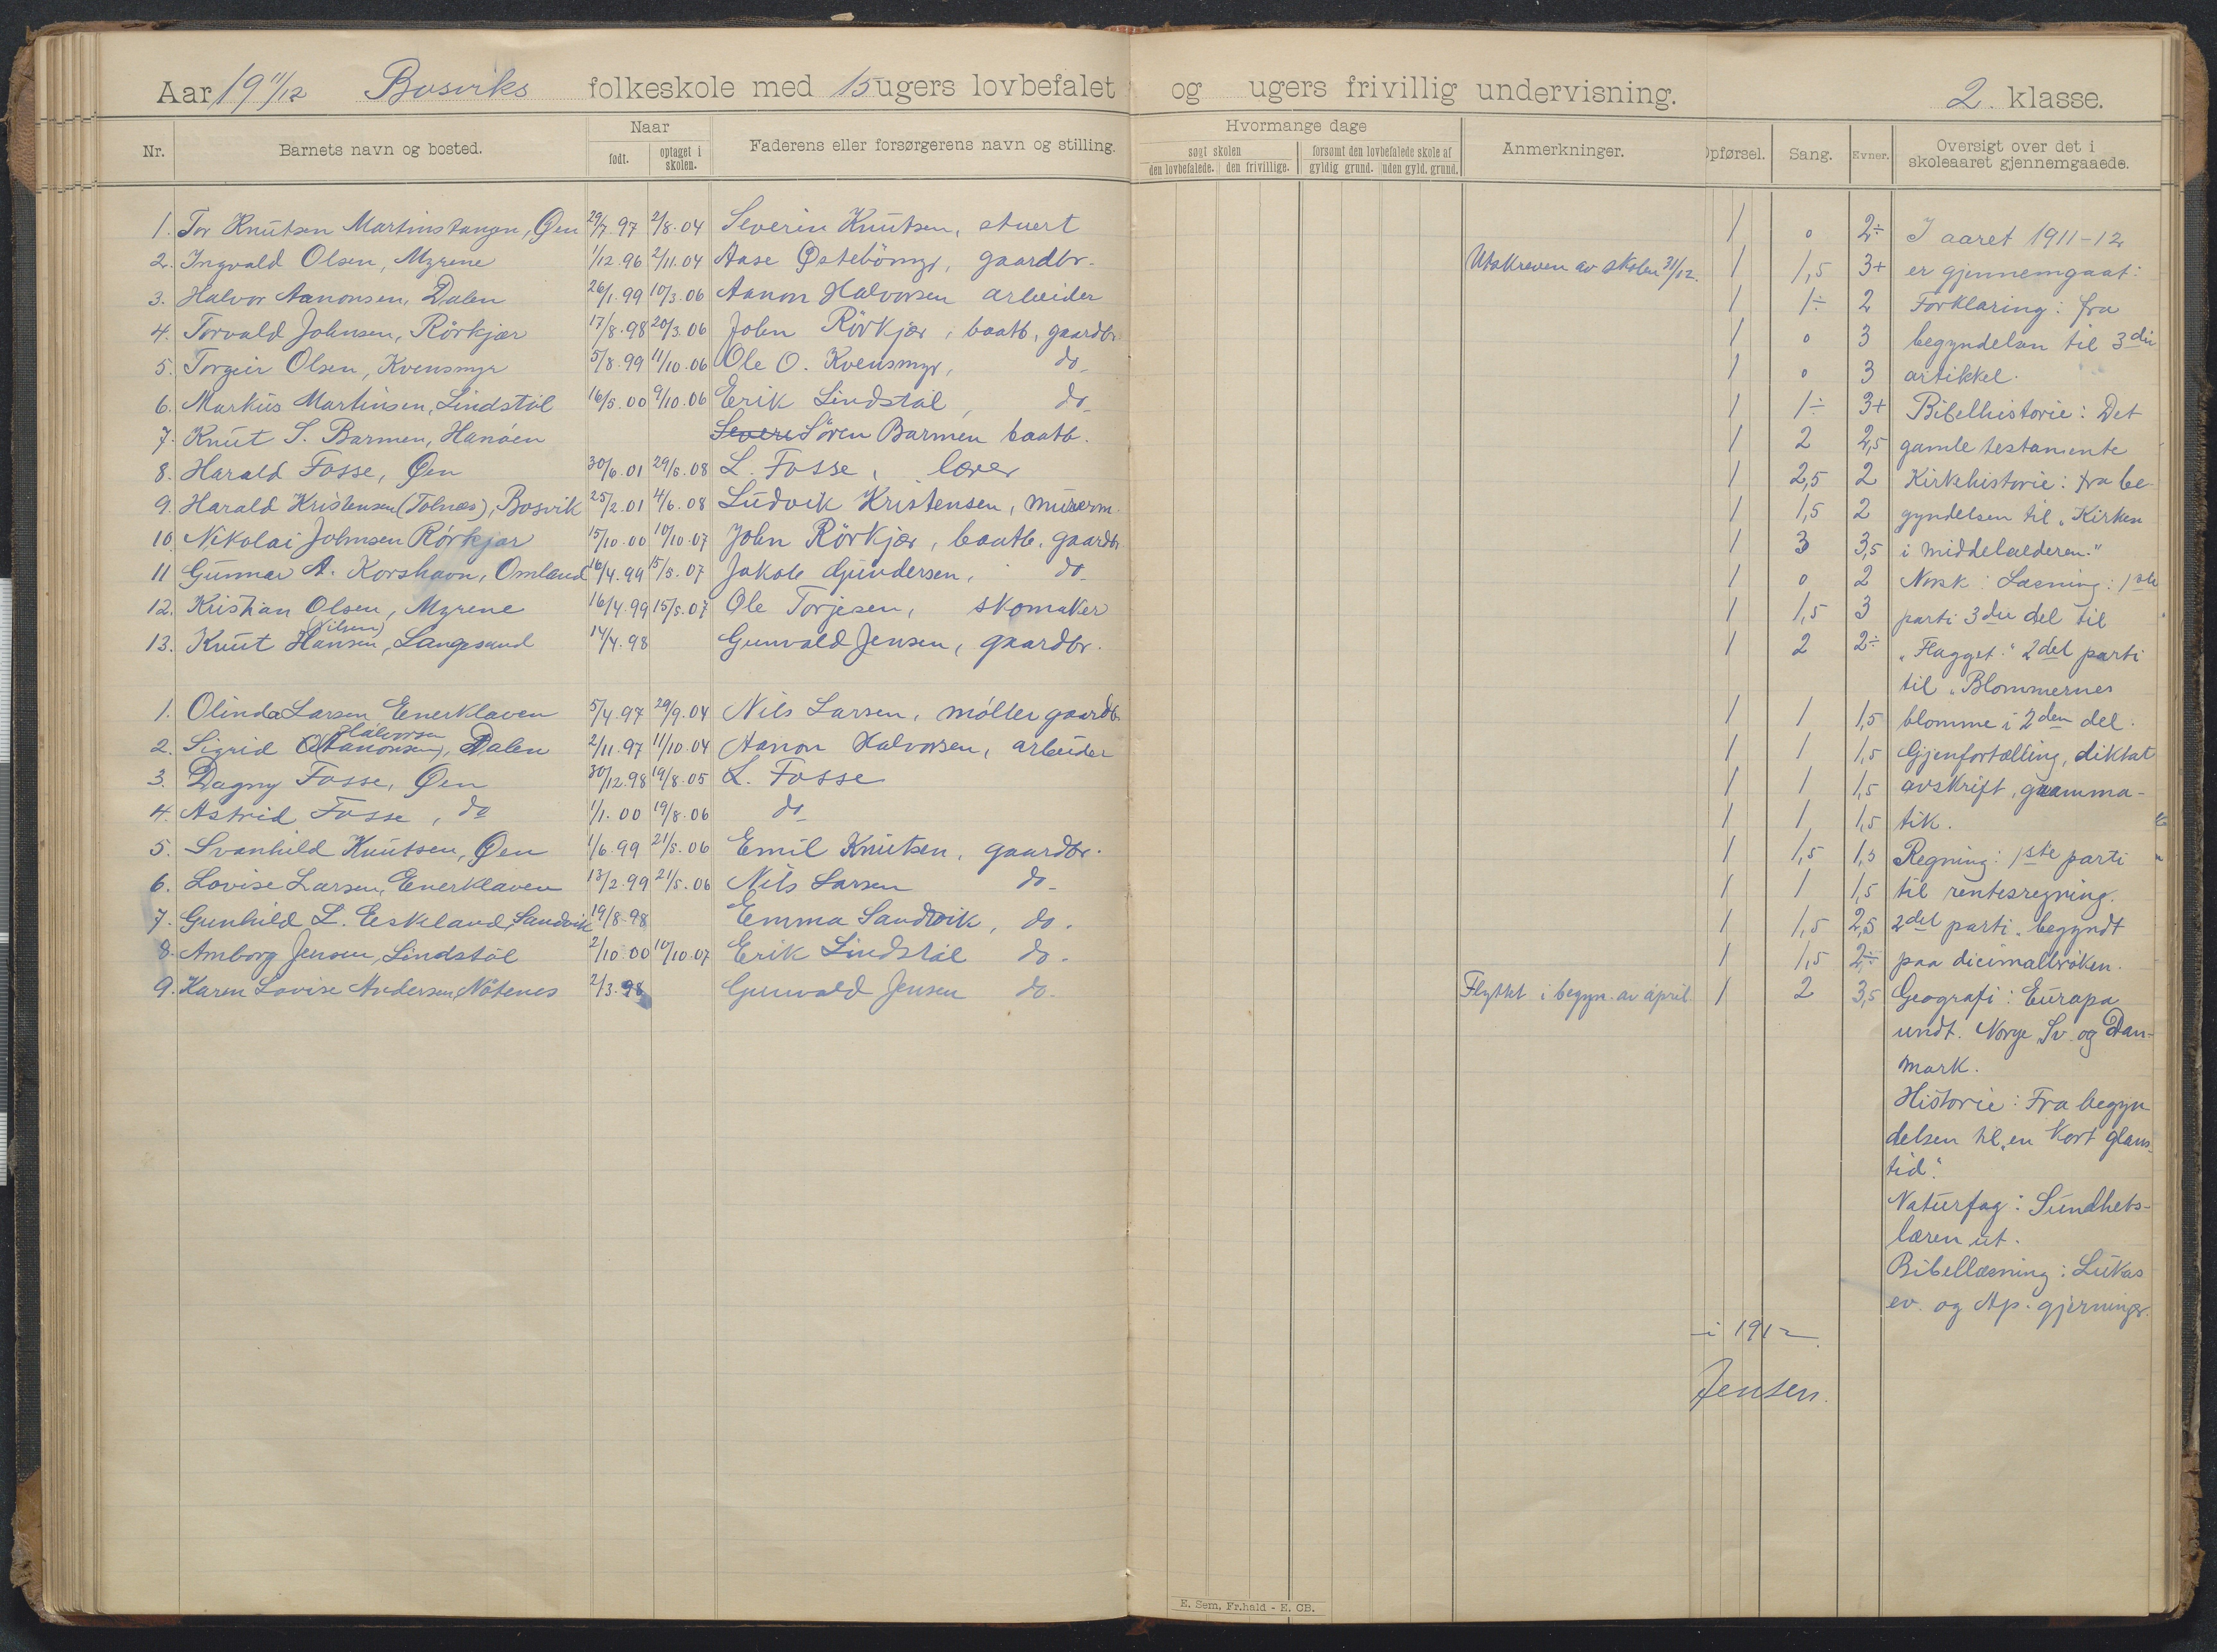 Aar 19 11/12 Bosviks folkeskole med 15 ugers lovbefalet og ugers frivillig undervisning. 2. klasse.
Nr. Barnets navn og bosted. Naar født. optaget i skolen. Faderens eller forsørgerens navn og stilling. Hvormange dage søgt skolen den lovbefalede. den frivillige. forsømt den lovbefalede skole af gyldig grund. uden gyld. grund. Anmerkninger. Opførsel. Sang. Evner. Oversigt over det i skoleaaret gjennemgaaede.
1. Tor Knutsen Martinstangen, Øen 29/7.97 2/8.04 Severin Knutsen, stuert 1 0 2÷ I aaret 1911-12
2. Ingvald Olsen, Myrene 1/12.96 2/11.04 Aase Østebömyr, gaardbr. Utskreven av skolen 31/12. 1 1,5 3+ er gjennemgaat:
3. Halvor Aanonsen, Dalen 26/1.99 10/3.06 Aanon Halvorsen arbeider 1 1÷ 2 Forklaring: fra
4. Torvald Johnsen, Rörkjær 17/8.98 20/3.06 John Rörkjær, baatb, gaardbr 1 0 3 begyndelsen til 3die
5. Torgeir Olsen, Kvensmyr 5/8.99 11/10.06 Ole O. Kvensmyr, do 1 0 3 artikkel.
6. Markus Martinsen, Lindstöl 16/5.00 9/10.06 Erik Lindstöl, do 1 1÷ 3+ Bibelhistorie: Det
7. Knut S. Barmen, Hanöen Severi Sören Barmen baatb. 1 2 2,5 gamle testamente
8. Harald Fosse, Øen 30/6.01 29/6.08 L. Fosse, lærer 1 2,5 2 Kirkehistorie: fra be-
9. Harald Kristensen (Tolnæs), Bosvik 25/2.01 4/6.08 Ludvik Kristensen, murerm. 1 1,5 2 gyndelsen til "Kirken
10. Nikolai Johnsen Rörkjær 15/10.00 10/10.07 John Rörkjær, baatb. gaardbr 1 3 3,5 i middelalderen."
11 Gunnar A. Korshavn, Omland 16/4.99 15/5.07 Jakob Gundersen, do 1 0 2 Norsk: Læsning: 1ste
12. Kristian Olsen, Myrene 16/4.99 15/5.07 Ole Torjesen, skomaker 1 1,5 3 parti 3die del til
13. Knut Hansen (Nilsen), Langesund 14/4.98 Gunvald Jensen, gaardbr. 1 2 2÷ "Flagget." 2det parti
til "Blommernes
1. Olinda Larsen Enerklaven 5/4.97 29/9.04 Nils Larsen, möller gaardb. 1 1 1,5 blomme i 2den del.
2. Sigrid Halvorsen (Aanonsen), Dalen 2/11.97 11/10.04 Aanon Halvorsen, arbeider 1 1 1,5 Gjenfortælling, diktat
3. Dagny Fosse, Øen 30/12.98 19/8.05 L. Fosse 1 1 1,5 avskrift, gramma-
4. Astrid Fosse, do 1/1.00 19/8.06 do 1 1 1,5 tik.
5. Svanhild Knutsen, Øen 1/6.99 21/5.06 Emil Knutsen, gaardbr. 1 1,5 1,5 Regning: 1ste parti
6. Lovise Larsen, Enerklaven 13/2.99 21/5.06 Nils Larsen do 1 1 1,5 til rentesregning.
7. Gunhild L. Eskeland, Sandvik 19/8.98 Emma Sandvik, do. 1 1,5 2,5 2det parti begyndt
8. Amborg Jensen, Lindstöl 2/10.00 10/10.07 Erik Lindstöl do. 1 1,5 2÷ paa dicimalbröken.
9. Karen Lovise Andersen, Nötenes 2/3.98 Gunvald Jensen do. Flyttet i begyn. av april. 1 2 3,5 Geografi: Europa
undt. Norge, Sv. og Dan-
mark.
Historie: Fra begyn
delsen til "en kort glans-
tid".
Naturfag: Sundhets-
læren ut.
Bibellæsning: Lukas
ev. og Ap. gjerninger.
i 1912
Jensen.
E. Sem, Fr.hald - E. CB.